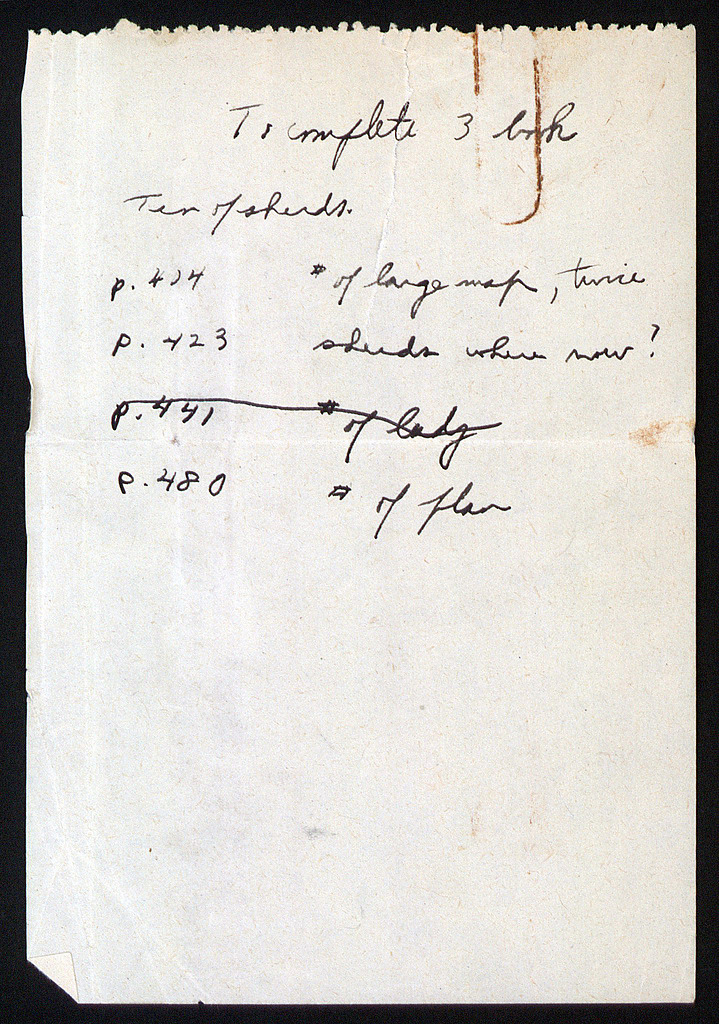 To complete 3 book
of sherds.
p. 414 # of large map, twice
p. 423 sherds where now?
p. 441 # of lady
p. 480 # of plan